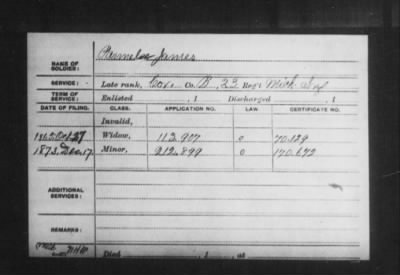 NAME OF SOLDIER: James
SERVICE: Late rank, Co. B, 23 Reg't Mich. Inf
TERM OF SERVICE: Enlisted , 1 Discharged , 1
DATE OF FILING. CLASS. APPLICATION NO. LAW. CERTIFICATE NO.
Invalid,
1865 Oct. 27 Widow, 112.907 0 70.129
1873. Dec. 17. Minor, 212.899 0 170.672
ADDITIONAL SERVICES:
REMARKS:
Died , 1 , at